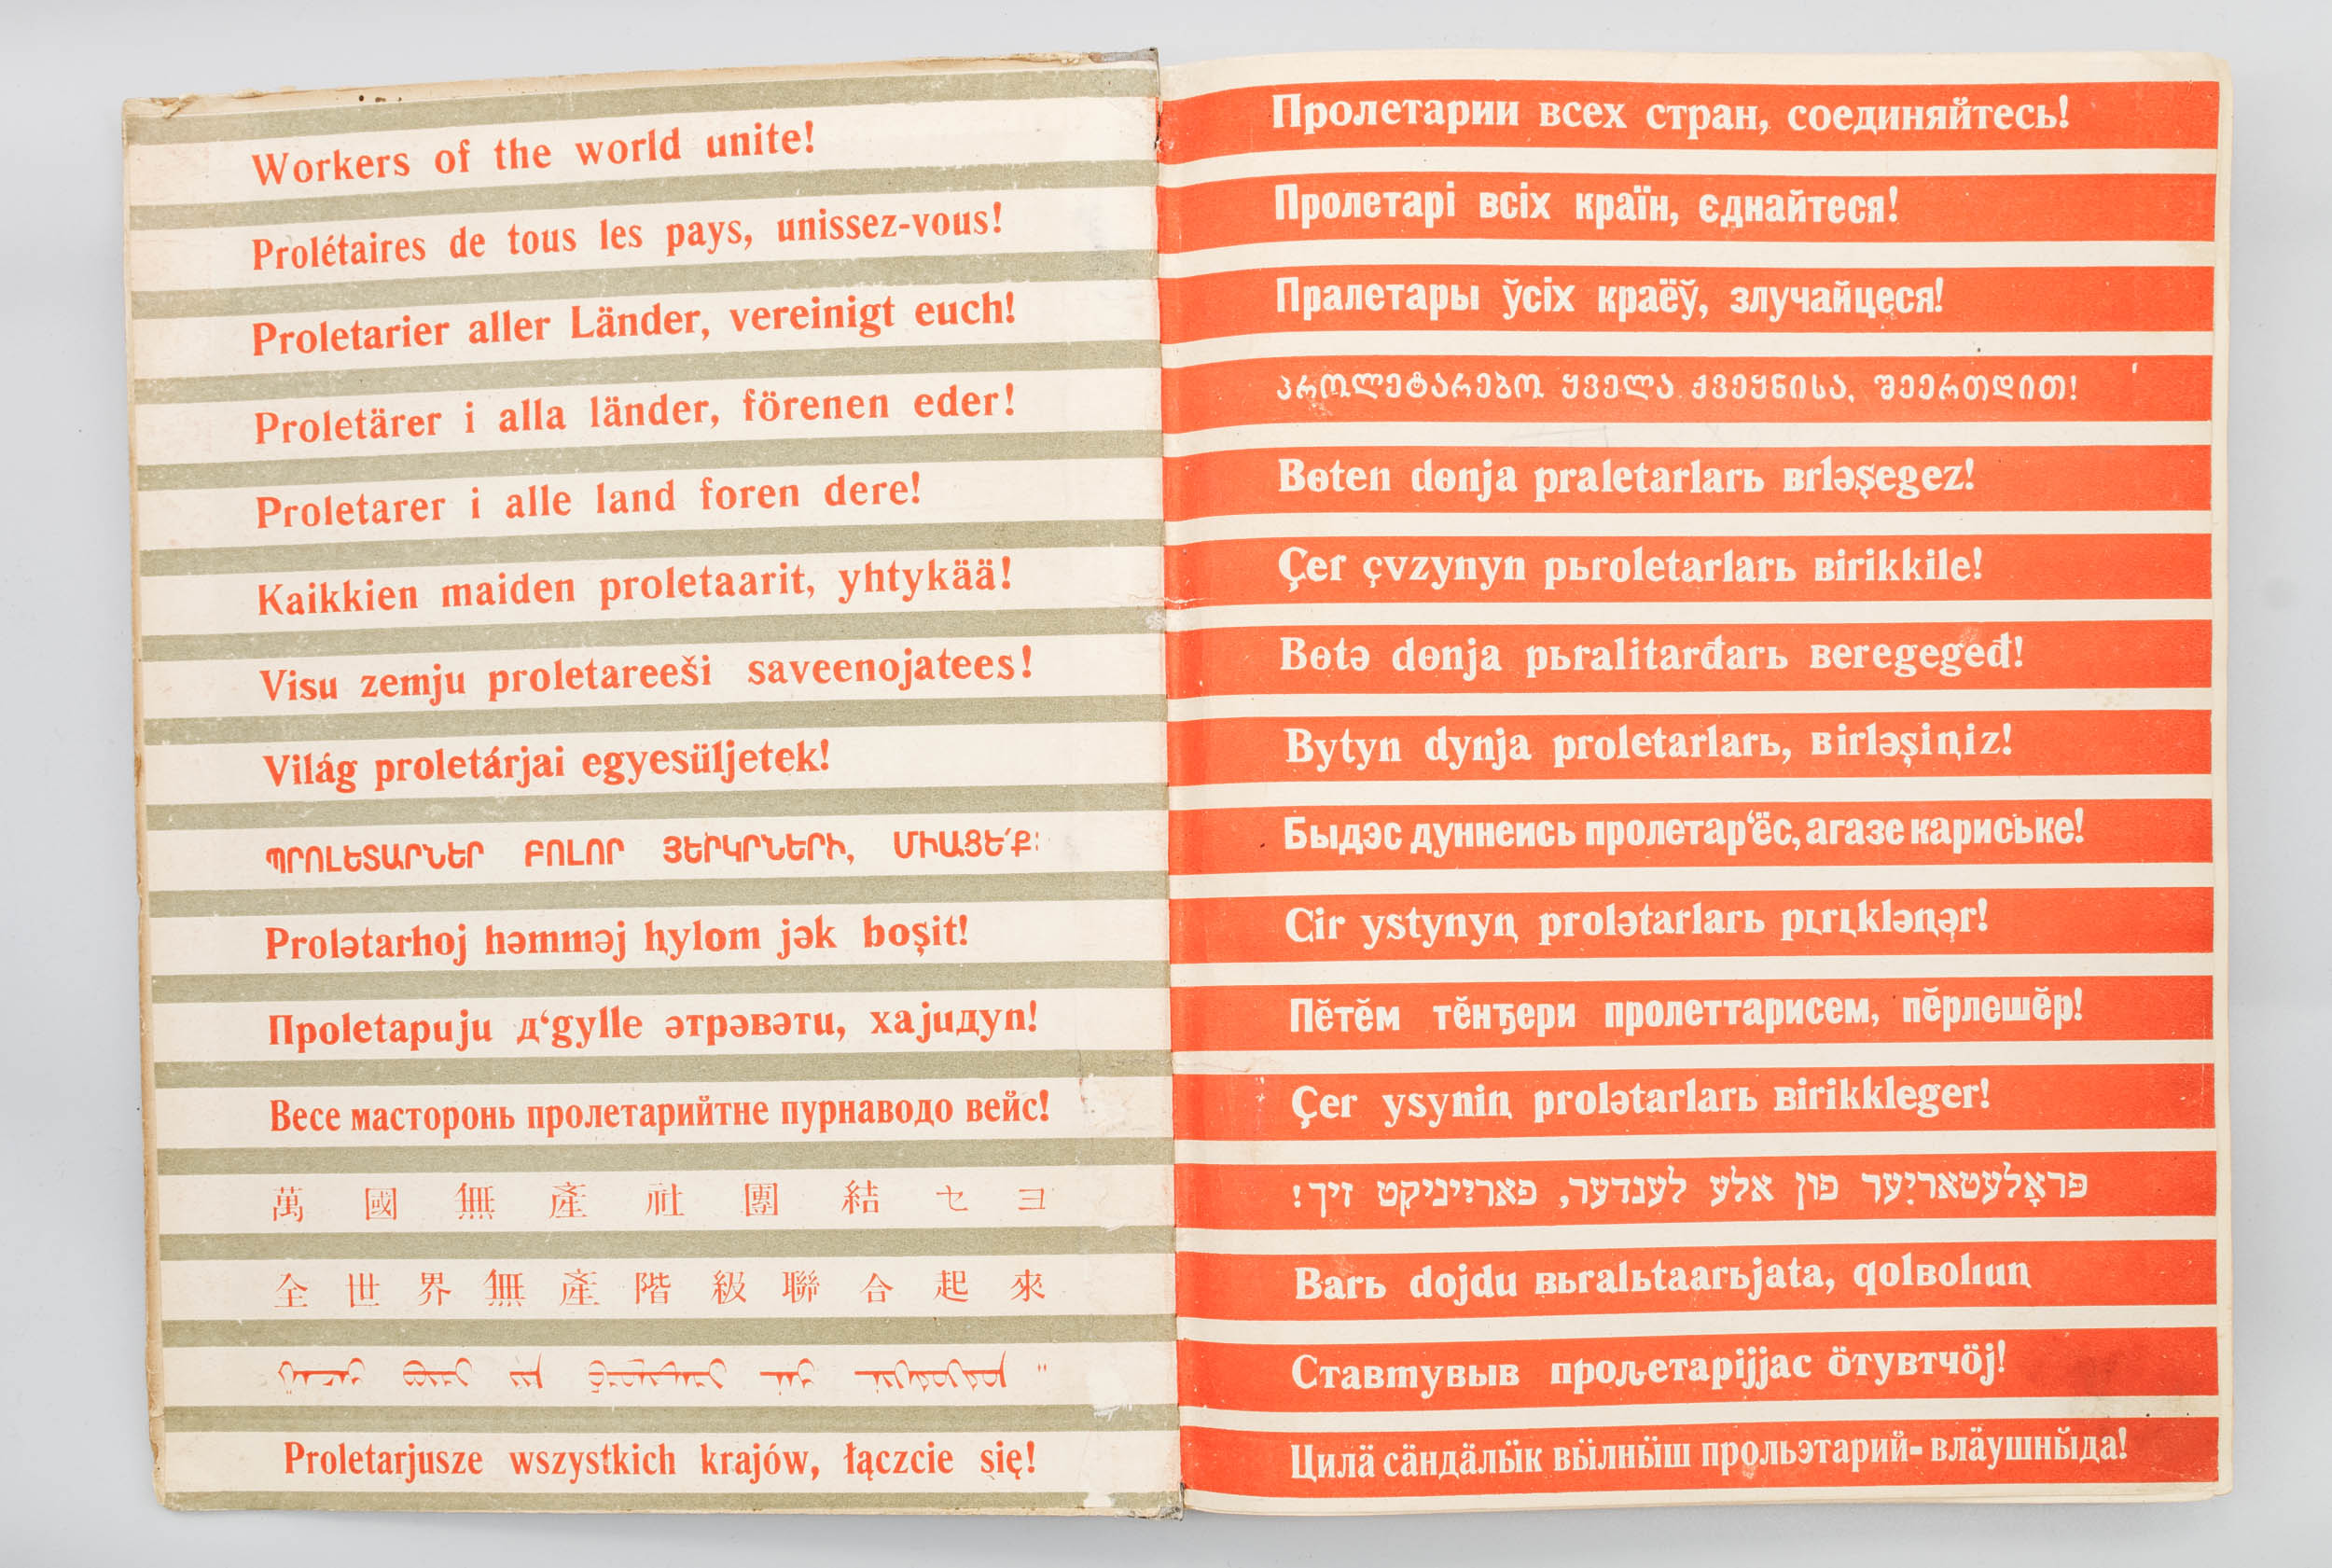 Workers of the world unite!
Prolétaires de tous les pays, unissez-vous!
Proletarier aller Länder, vereinigt euch!
Proletärer i alla länder, förenen eder!
Proletarer i alle land foren dere!
Kaikkien maiden proletaarit, yhtykää!
Visu zemju proletareeši saveenojatees!
Világ proletárjai egyesüljetek!
ՊՐՈԼԵՏԱՐՆԵՐ ԲՈԼՈՐ ՅԵՐԿՐՆԵՐԻ, ՄԻԱՑԵ՛Ք։
Prolətarhoj həmməj ⱨylom jək boşit!
Весе масторонь пролетарийтне пурнаводо вейс!
萬國無產社團結セヨ
全世界無產階級聯合起來
Proletarjusze wszystkich krajów, łączcie się!
Пролетарии всех стран, соединяйтесь!
Пролетарі всіх країн, єднайтеся!
Пралетары ўсіх краёў, злучайцеся!
პროლეტარებო ყველა ქვეყნისა, შეერთდით!
Bɵten dɵnja praletarlarь ʙrləşegez!
Çer çvzynyn pьroletarlarь ʙirikkile!
Bɵtə dɵnja pьralitarđarь ʙeregegeđ!
Bytyn dynja proletarlarь, ʙirləşiꞑiz!
Быдэс дуннеись пролетар‘ёс, агазе кариське!
Cir ystynyꞑ prolətarlarь pɩrɩkləꞑər!
Пӗтӗм тӗнҕери пролеттарисем, пӗрлешӗр!
Çer ysyniꞑ prolətarlarь ʙirikkleger!
פּראָלעטאריִער פון אלע לענדער, פאראייניקט זיך!
Barь dojdu ʙьralьtaarьjata, qolʙohuꞑ
Ставтувыв пролетаріјјас ӧтувтчӧј!
Цилӓ сӓндӓлӹк вӹлнӹш прольэтарий-влӓушнӹда!